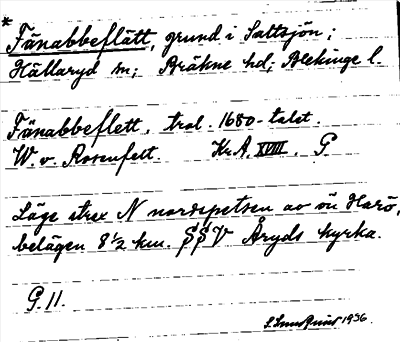 * Fänabbeflätt, grund i Saltsjön;
Hällaryd sn; Bräkne hd; Blekinge l.
Fänabbeflett, trol. 1680-talet.
W. v. Rosenfelt. Kr.A. XVIII. G.
Läge strax N nordspetsen av ön Harö,
belägen 8½ km. SSV Åryds kyrka.
G. 11.
1936.